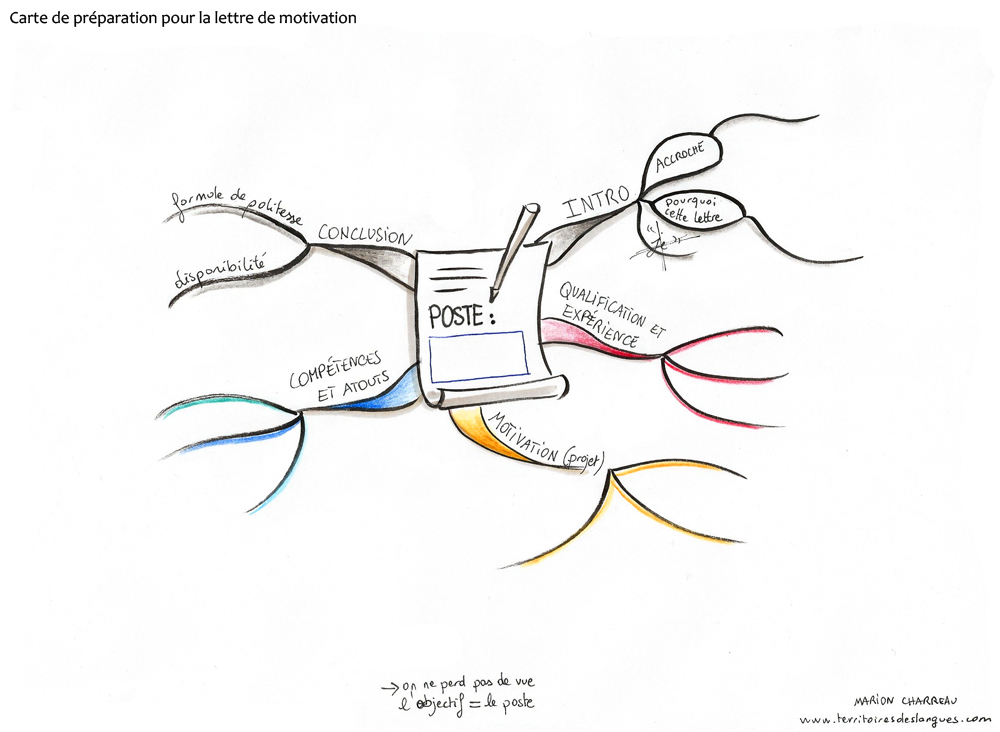 Carte de préparation pour la lettre de motivation
INTRO
ACCROCHE
pourquoi
cette lettre
"Je"
QUALIFICATION ET
EXPÉRIENCE
MOTIVATION (projet)
COMPÉTENCES
ET ATOUTS
CONCLUSION
formule de politesse
disponibilité
POSTE :
→ on ne perd pas de vue
l'objectif = le poste
MARION CHARREAU
www.territoiresdeslangues.com